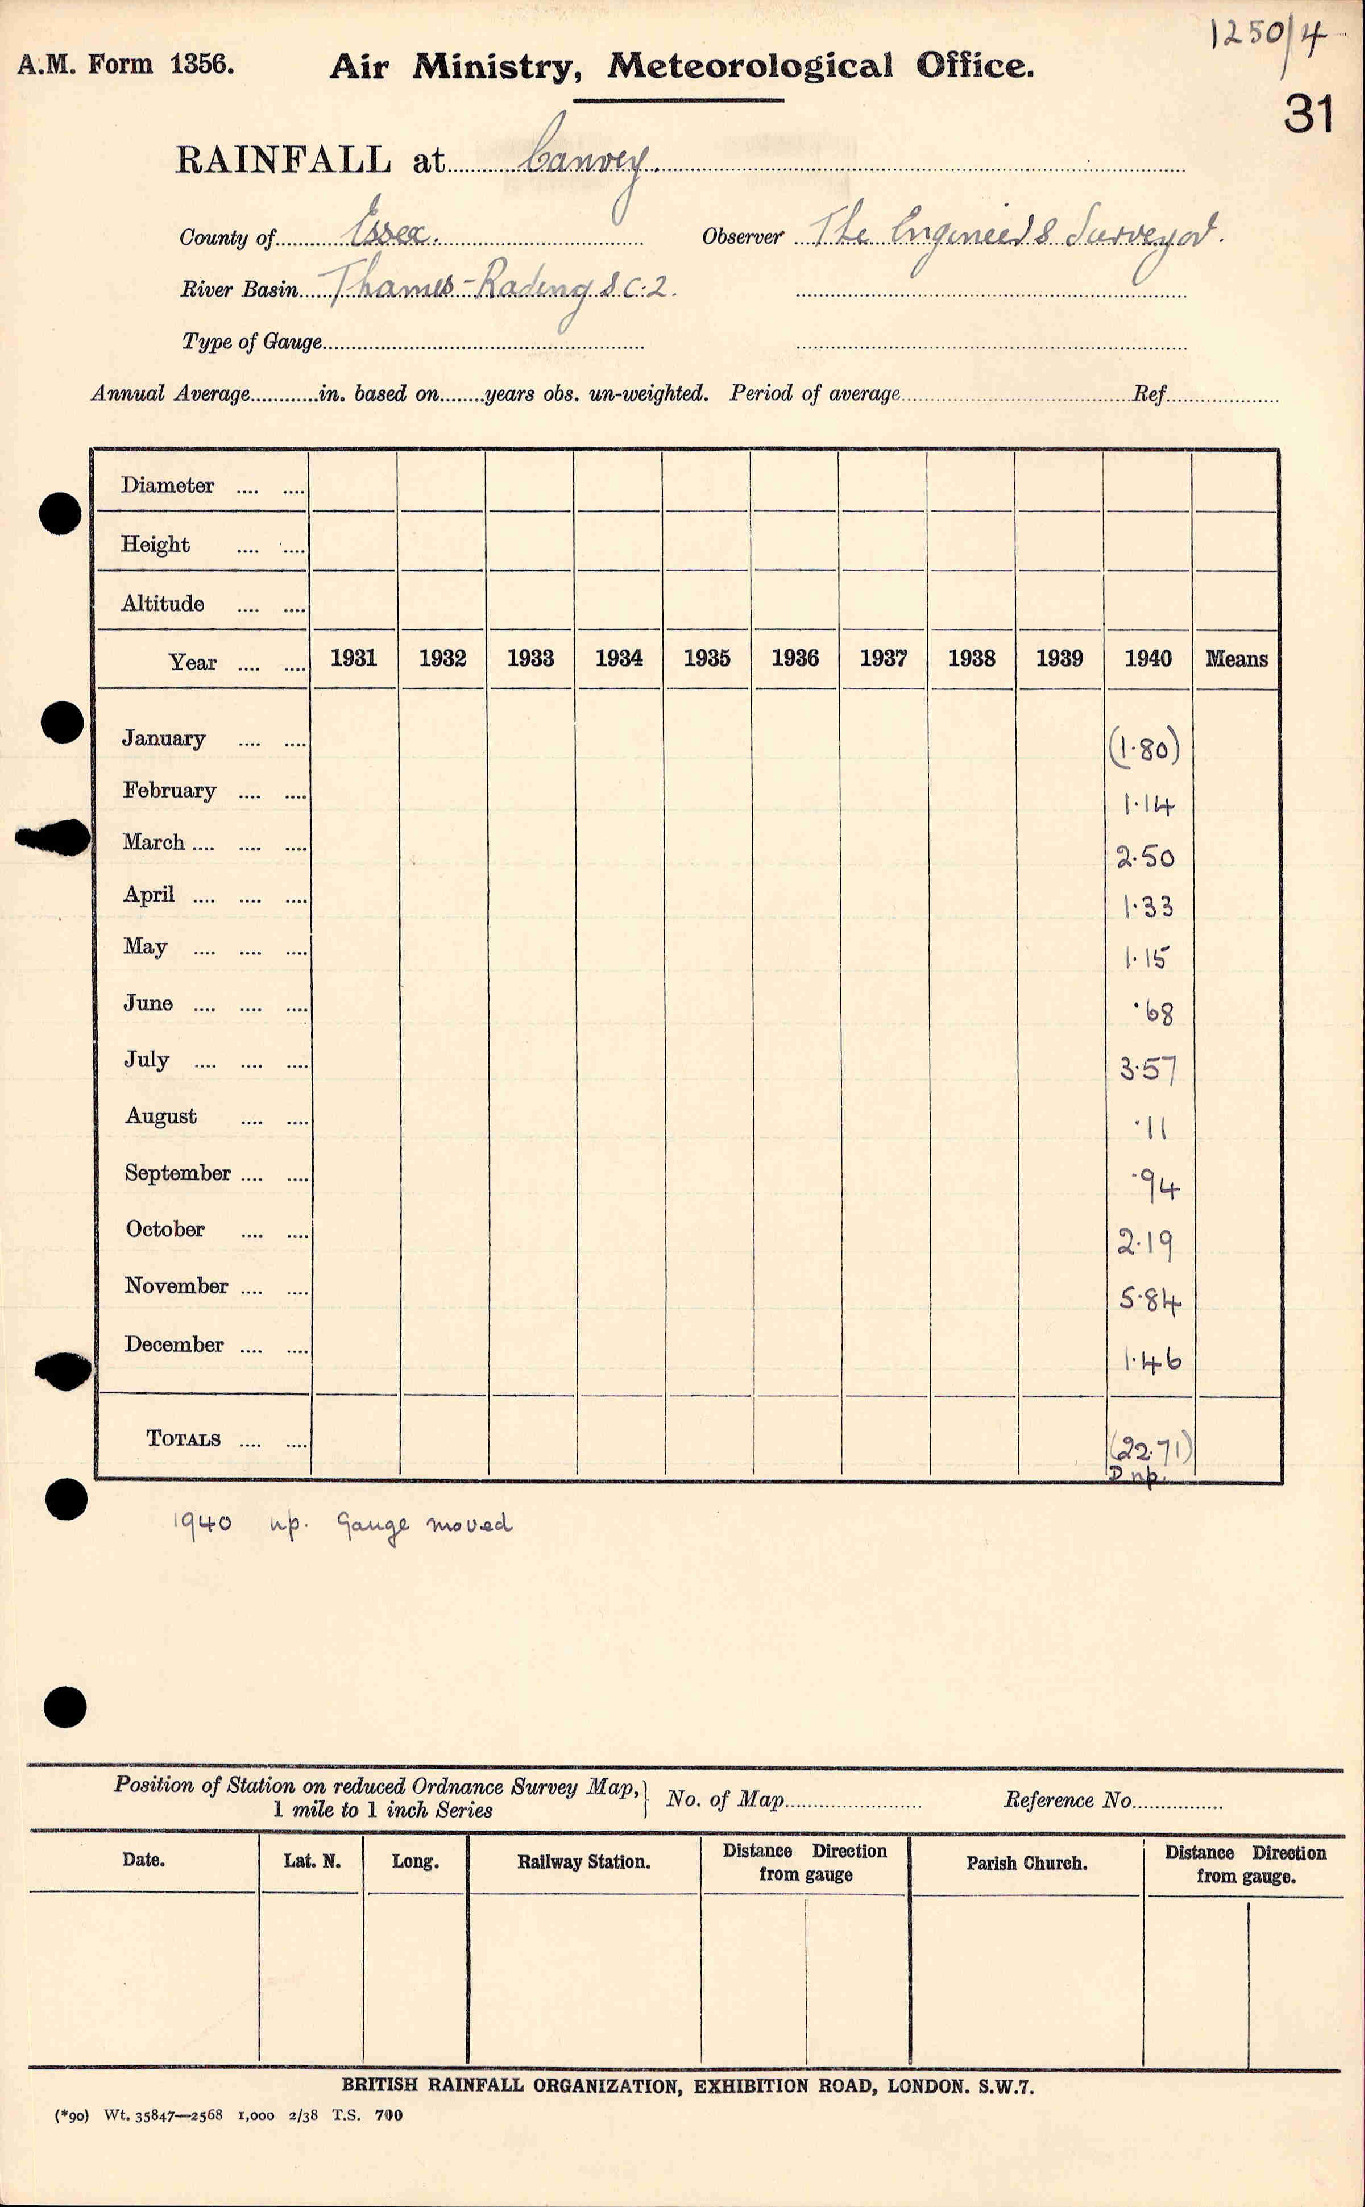 1250/4
A.M. Form 1356. Air Ministry, Meteorological Office.
31
RAINFALL at Canvey.
County of Essex. Observer The Engineer & Surveyor.
River Basin Thames - Roding & C.2.
Type of Gauge
Annual Average in. based on years obs. un-weighted. Period of average Ref.
Diameter
Height
Altitude
Year 1931 1932 1933 1934 1935 1936 1937 1938 1939 1940 Means
January (1.80)
February 1.14
March 2.50
April 1.33
May 1.15
June .68
July 3.57
August .11
September .94
October 2.19
November 5.84
December 1.46
TOTALS (22.71)
D np.
1940 np. Gauge moved
Position of Station on reduced Ordnance Survey Map, No. of Map Reference No.
1 mile to 1 inch Series
Date. Lat. N. Long. Railway Station. Distance Direction from gauge Parish Church. Distance Direction from gauge.
BRITISH RAINFALL ORGANIZATION, EXHIBITION ROAD, LONDON. S.W.7.
(*90) Wt. 35847—2568 1,000 2/38 T.S. 700